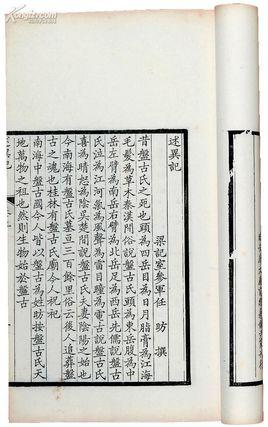 述異記
梁記室參軍任 昉 撰
昔盤古氏之死也頭為四岳目為日月脂膏為江海
毛髮為草木秦漢間俗說盤古氏頭為東岳腹為中
岳左臂為南岳右臂為北岳足為西岳先儒說盤古
氏泣為江河氣為風聲為雷目瞳為電古說盤古氏
喜為晴怒為陰吳楚間說盤古氏夫妻陰陽之始也
今南海有盤古氏墓亘三百餘里俗云後人追葬盤
古之魂也桂林有盤古氏廟今人祝祀
南海中盤古國今人皆以盤古為姓昉按盤古氏天
地萬物之祖也然則生物始於盤古